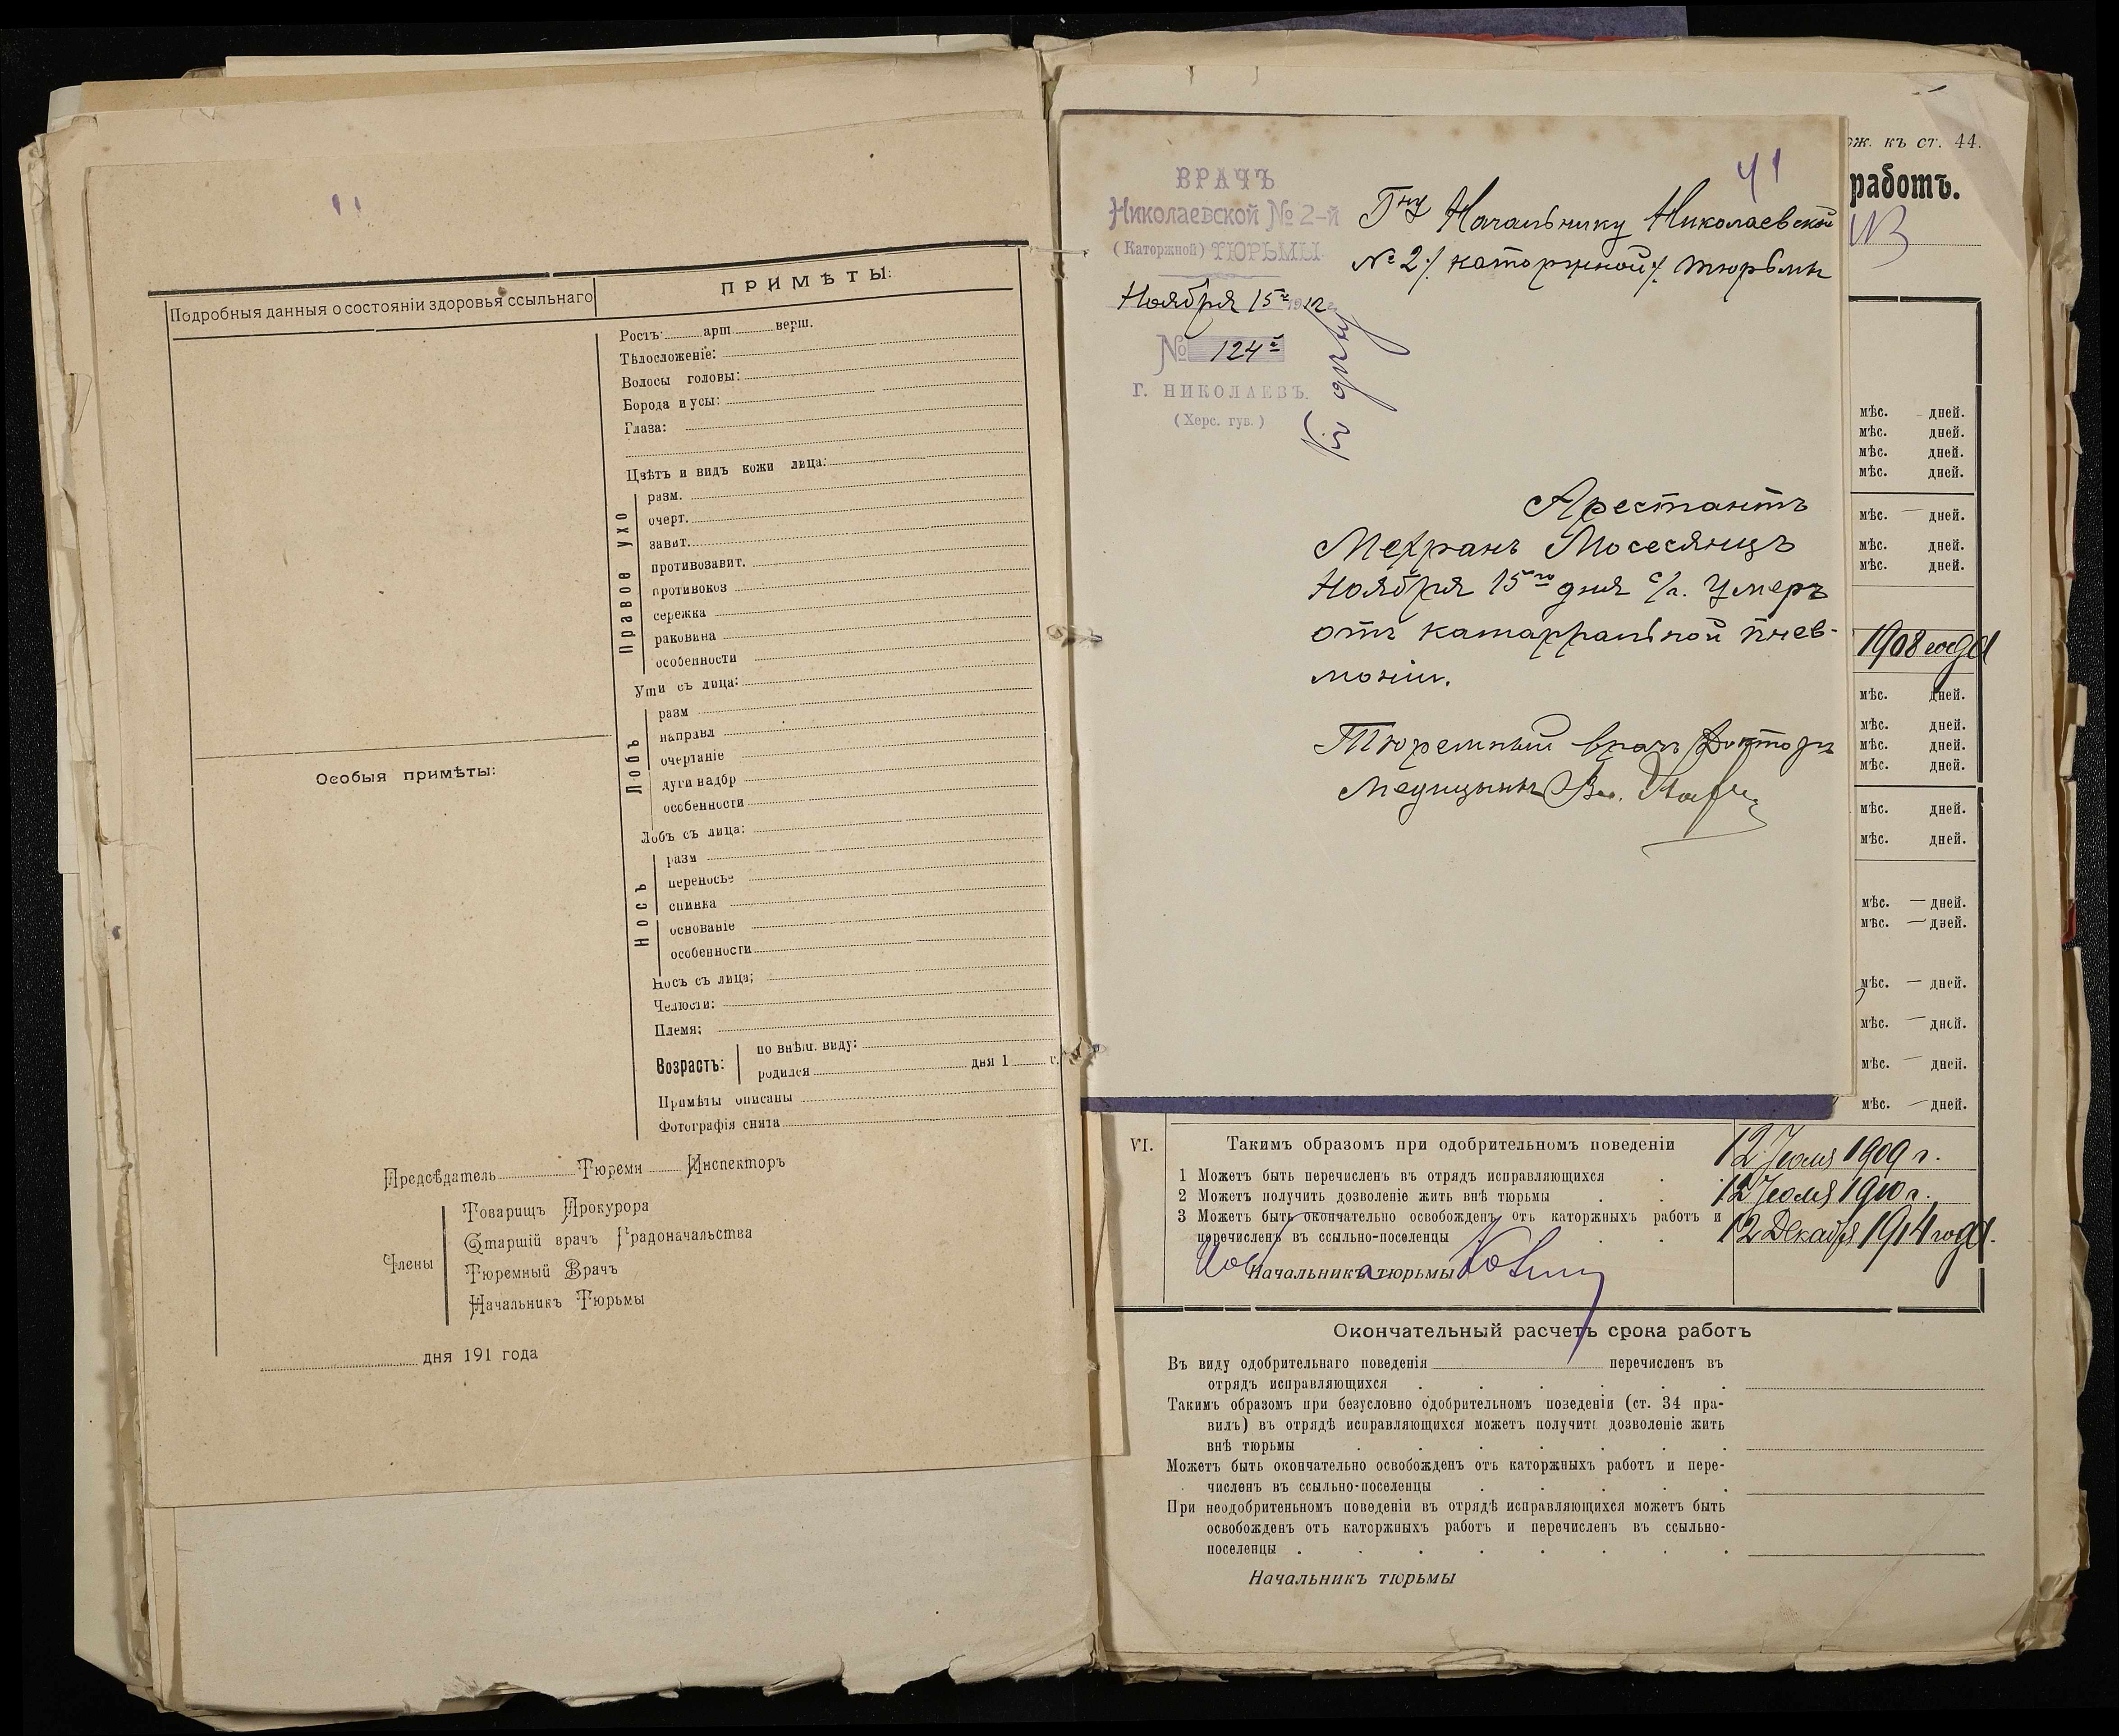 Подробныя данныя о состояніи здоровья ссыльнаго
ПРИМѢТЫ:
Ростъ: арш. верш.
Тѣлосложеніе:
Волосы головы:
Борода и усы:
Глаза:
Цвѣтъ и видъ кожи лица:
Правое ухо
разм.
очерт.
завит.
противозавит.
противокоз
сережка
раковина
особенности
Уши съ лица:
Лобъ
разм
направл
очертаніе
дуги надбр
особенности
Лобъ съ лица:
Носъ
разм
переносье
спинка
основаніе
особенности
Носъ съ лица;
Челюсти:
Племя;
Возрастъ:
по внѣш. виду:
родился дня 1 г.
Примѣты описаны
Фотографія снята
Особыя примѣты:
Предсѣдатель Тюремн Инспекторъ
Члены
Товарищъ Прокурора
Старшій врачъ Градоначальства
Тюремный Врачъ
Начальникъ Тюрьмы
дня 191 года
41
ВРАЧЪ
Николаевской № 2-й
(Каторжной) ТЮРЬМЫ
Ноября 15 1912
№ 124
Г. НИКОЛАЕВЪ.
(Херс. губ.)
Къ дѣлу
Гну Начальнику Николаевской
№ 2 /. каторжной /. тюрьмы
Арестантъ
Мехранъ Мосесянцъ
Ноября 15го дня с/г. Умеръ
отъ катарральной пнев-
моніи.
Тюремный врачъ Докторъ
Медицины
ож. къ ст. 44.
работъ.
мѣс. дней.
мѣс. дней.
мѣс. дней.
мѣс. дней.
мѣс. — дней.
мѣс. дней.
мѣс. дней.
1908 года
мѣс. дней.
мѣс. дней.
мѣс. дней.
мѣс. дней.
мѣс. дней.
мѣс. дней.
мѣс. — дней.
мѣс. — дней.
мѣс. — дней.
мѣс. — дней.
мѣс. — дней.
мѣс. — дней.
VI. Такимъ образомъ при одобрительномъ поведеніи
1 Можетъ быть перечисленъ въ отрядъ исправляющихся 12 Іюля 1909 г.
2 Можетъ получить дозволеніе жить внѣ тюрьмы 12 Іюля 1910 г.
3 Можетъ быть окончательно освобожденъ отъ каторжныхъ работъ и
перечисленъ въ ссыльно-поселенцы 12 Декабря 1914 года.
Начальника тюрьмы
Окончательный расчетъ срока работъ
Въ виду одобрительнаго поведенія перечисленъ въ
отрядъ исправляющихся
Такимъ образомъ при безусловно одобрительномъ поведеніи (ст. 34 пра-
вилъ) въ отрядѣ исправляющихся можетъ получить дозволеніе жить
внѣ тюрьмы
Можетъ быть окончательно освобожденъ отъ каторжныхъ работъ и пере-
численъ въ ссыльно-поселенцы
При неодобритеньномъ поведеніи въ отрядѣ исправляющихся можетъ быть
освобожденъ отъ каторжныхъ работъ и перечисленъ въ ссыльно-
поселенцы
Начальникъ тюрьмы